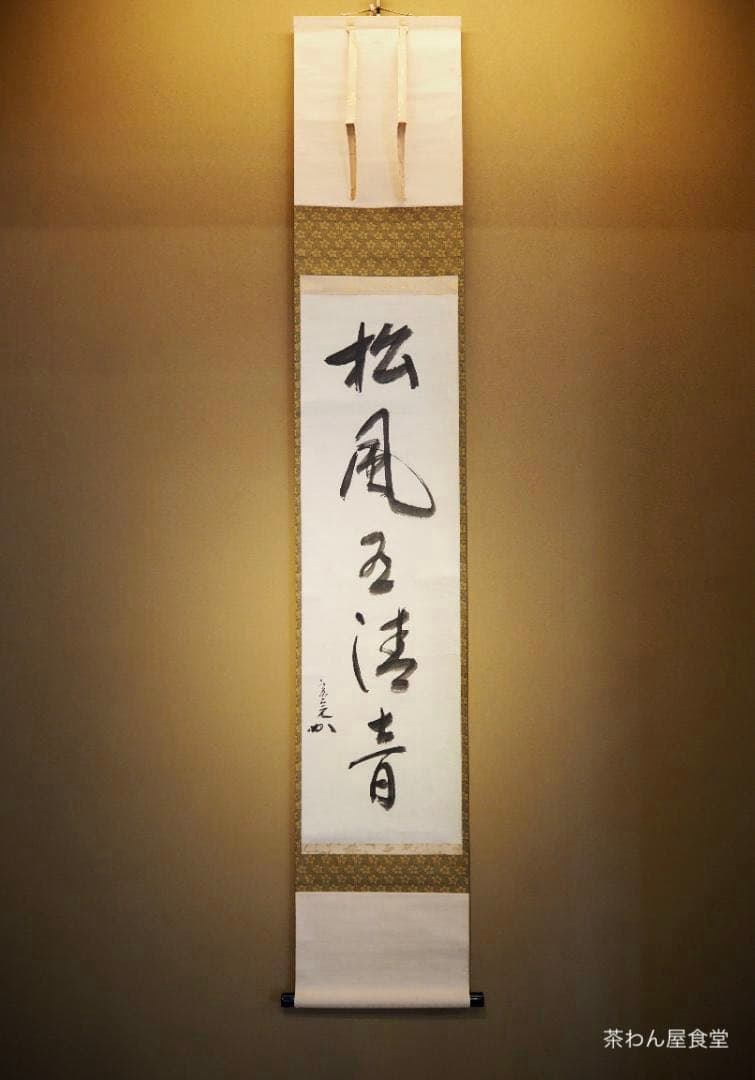 松風有清音
茶わん屋食堂